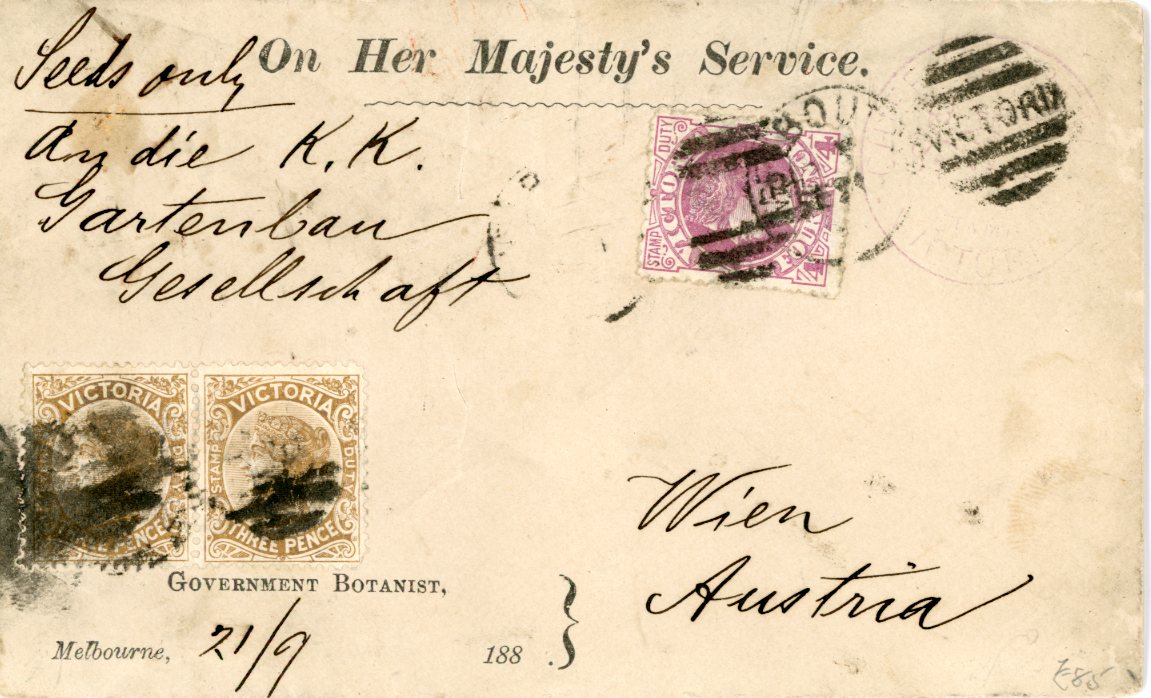 On Her Majesty's Service.
Seeds only
An die K. K.
Gartenbau
Gesellschaft
Wien
Austria
STAMP DUTY
VICTORIA
4
4
VICTORIA
VICTORIA
STAMP DUTY
THREE PENCE
VICTORIA
STAMP DUTY
THREE PENCE
GOVERNMENT BOTANIST,
Melbourne, 21/9 188 .